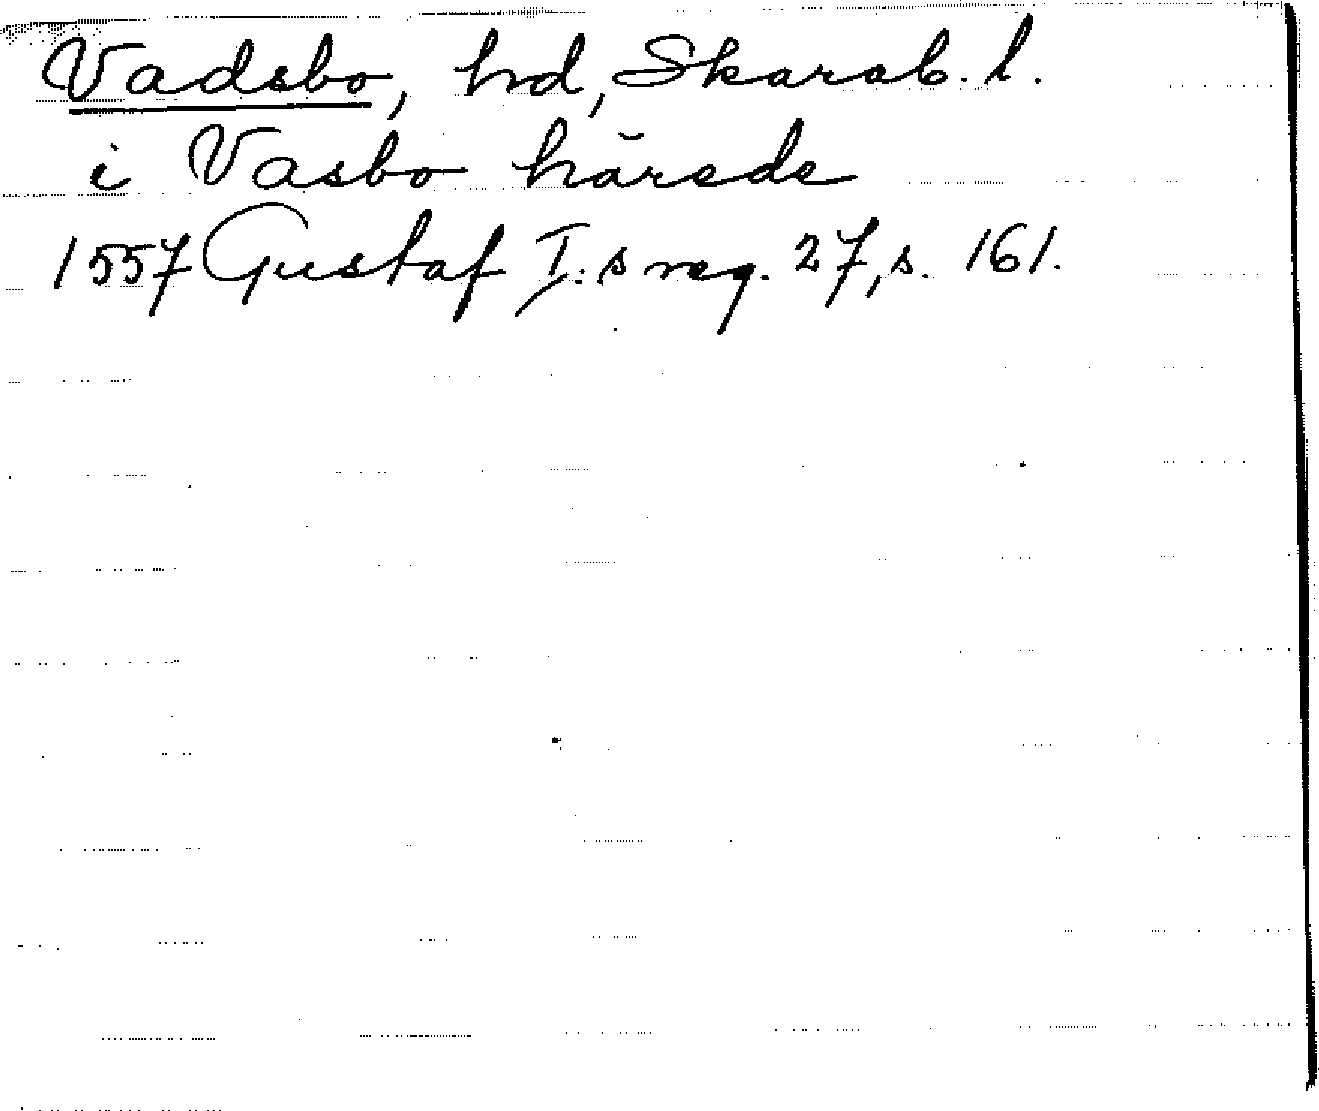 Vadsbo, hd, Skarab. l.
i Vasbo härede
1557 Gustaf I:s reg. 27, s. 161.